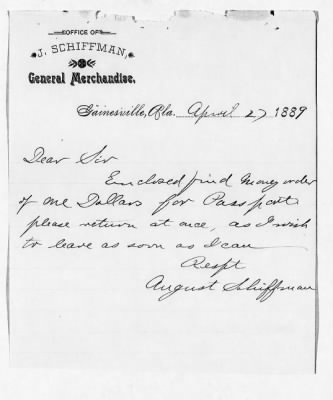 OFFICE OF
J. SCHIFFMAN,
General Merchandise.
Gainesville, Ala. April 27 1889
Dear Sir
Enclosed find Money order
of one Dollars for Passport
please return at once, as I wish
to leave as soon as I can
Respt
August Schiffman